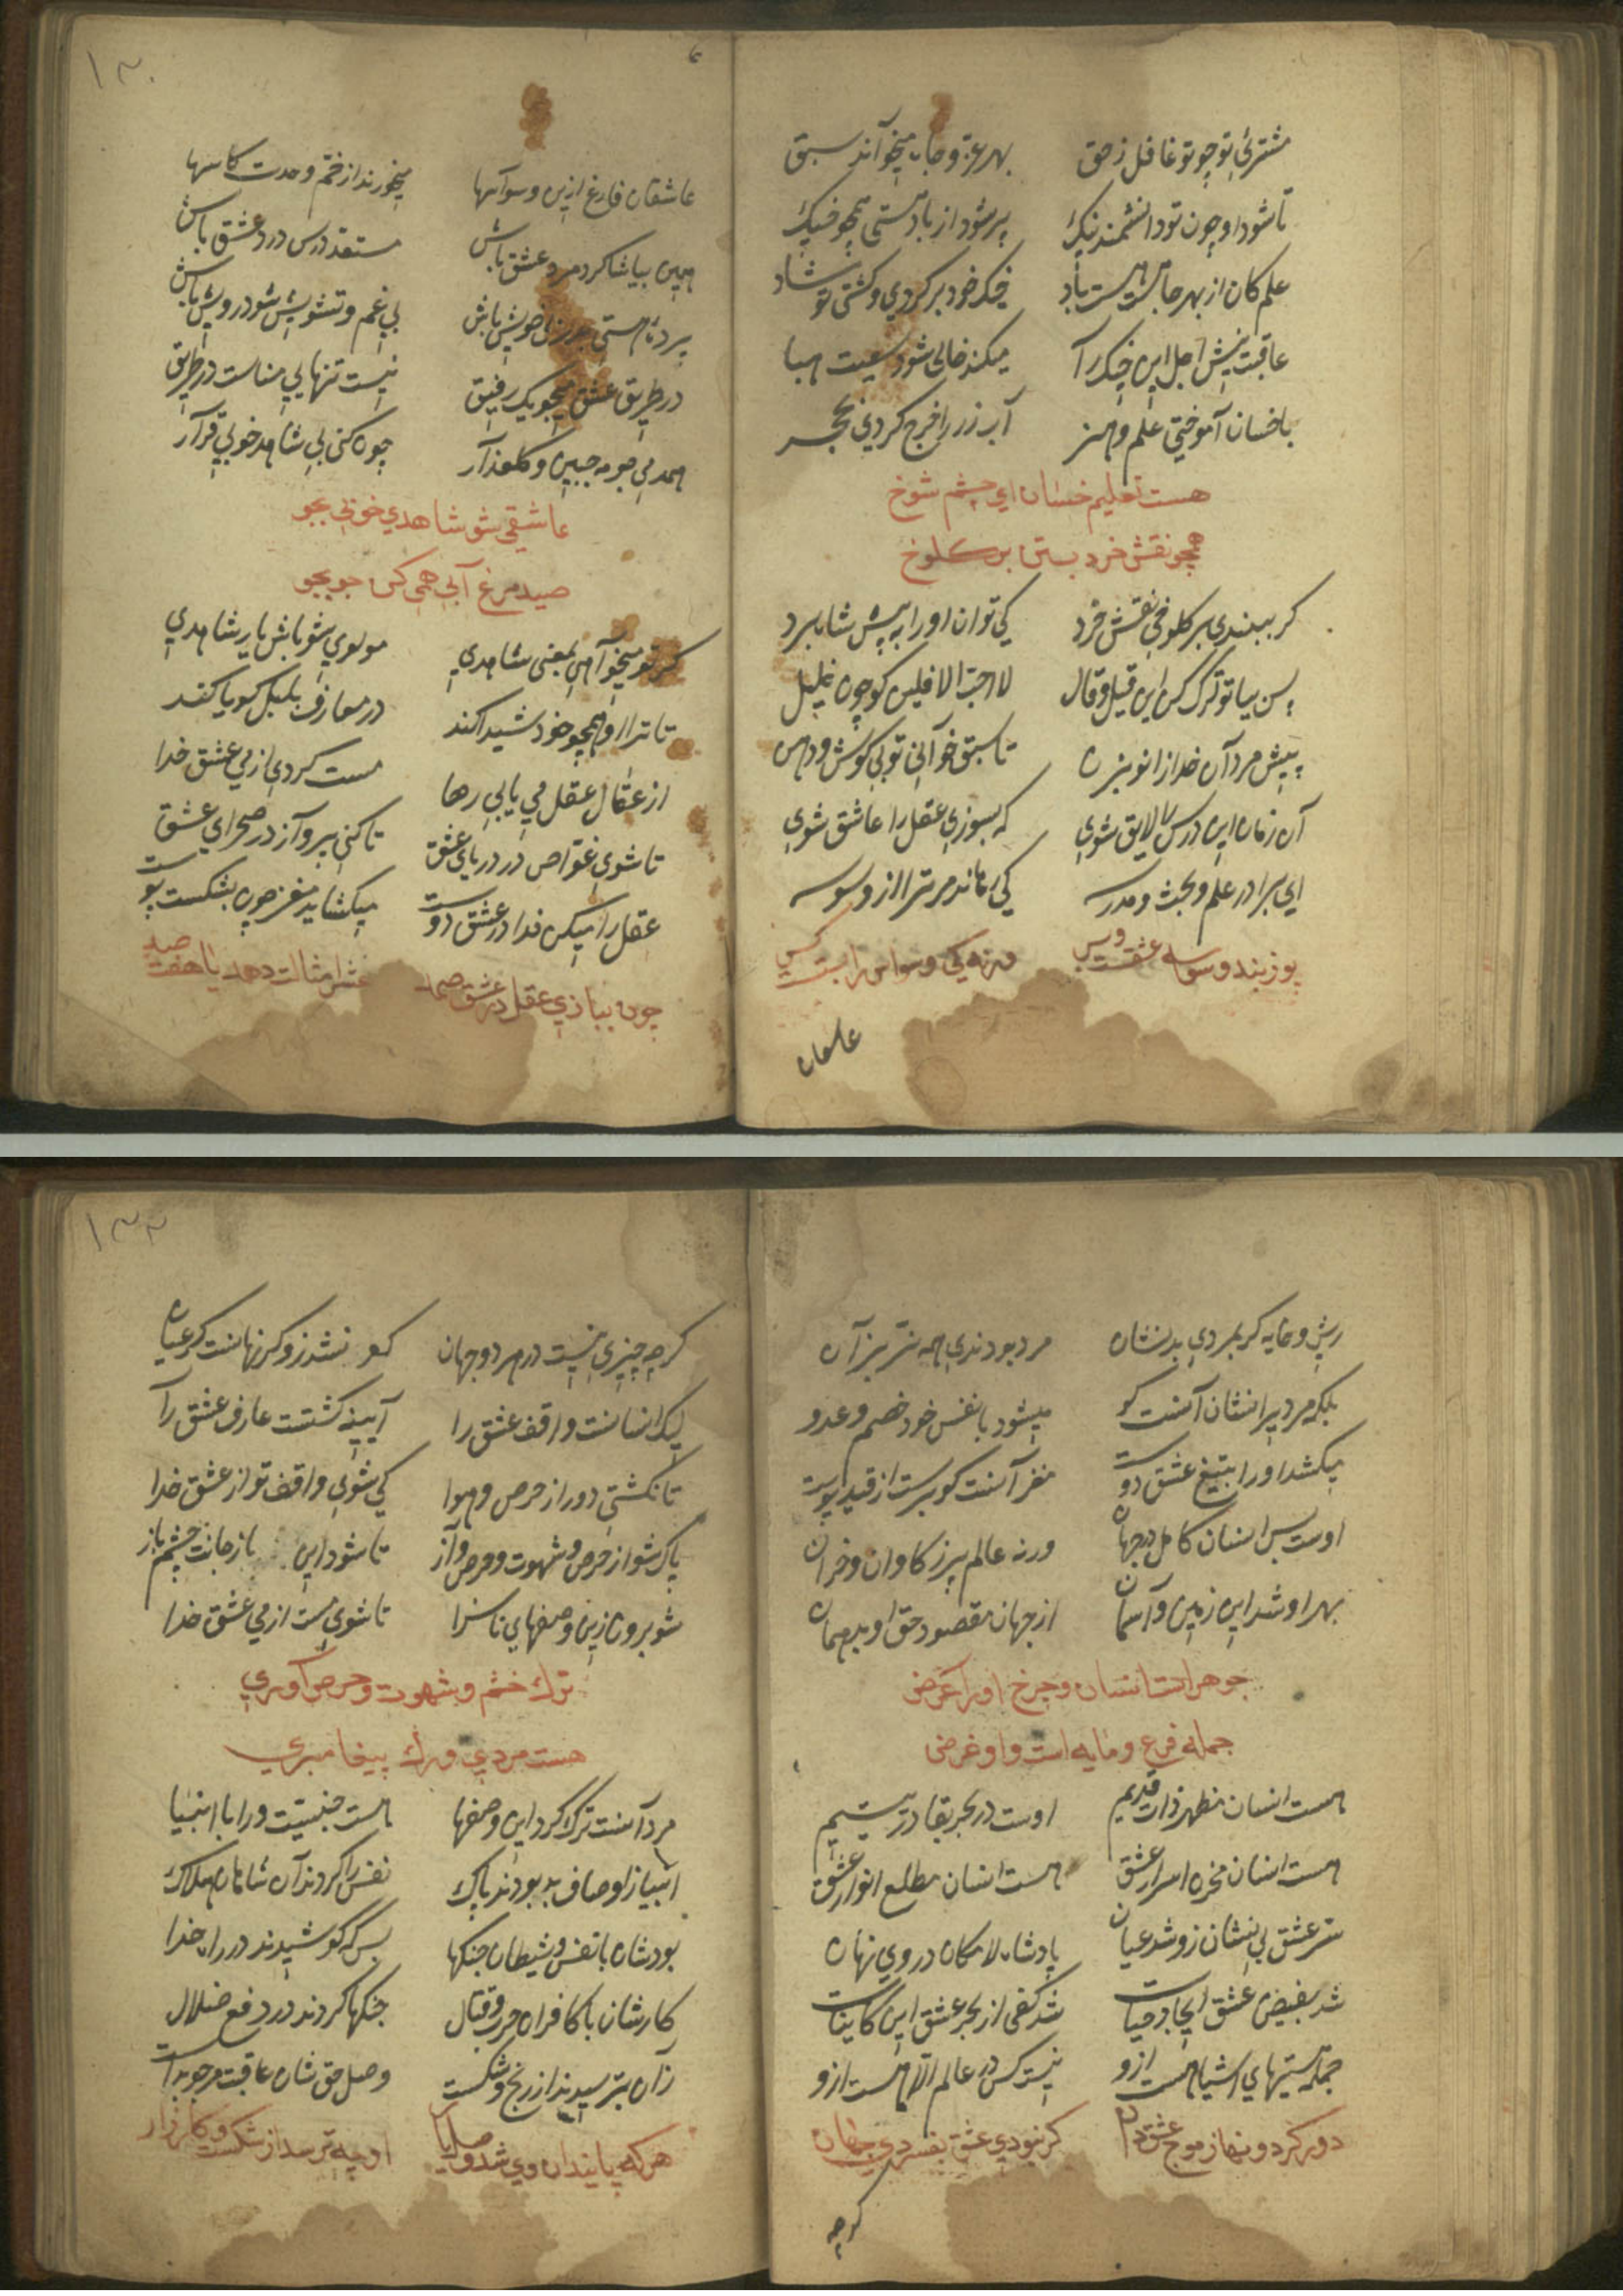 مشتریِ تو چو تو غافل ز حق بهر عز و جاه میخوآند سبق
تا شود او چون تو دانشمند نیک پر شود از باد هستی همچو خیک
علم کان از بهر جاهست هست باد خیک خود پر کردی و گشتی تو شاد
عاقبت نیش اجل این خیک را میکند خالی شود سعیت هبا
با خسان آموختی علم و هنر آب زر را خرج کردی بر حجر
هست تعلیم خسان ای چشم شوخ
همچو نقش خرد بستن بر کلوخ
گر ببندی بر کلوخی نقش خرد کی توان او را به پیش شاه برد
پس بیا تو ترک کن این قیل و قال لا احب الافلین گو چون خلیل
پیش مردآن خدا زانو بزن تا سبق خوآنی تو بی گوش و دهن
آن زمان این درس را لایق شوی که بسوزی عقل را عاشق شوی
ای برادر علم و بحث و مدرسه کی رهاند مر ترا از وسوسه
پوزبند وسوسه عشقست و بس ورنه کی وسواس را بستست کس
عاشقان
۱۳۰
عاشقان فارغ ازین وسوآسها میخورند از خم وحدت کاسها
همین بیا شاکرد مرد عشق باش مستعد درس درد عشق باش
پردهٔ هستی بدر زان خویش باش بی غم و تشویش شو درویش باش
در طریق عشق میجو یک رفیق نیست تنهایی مناسب در طریق
همدمی جو مه جبین و گلعذآر چون کنی بی شاهد خوبی قرآر
عاشقی شو شاهدی خوبی بجو
صید مرغ آبی همی کن جو بجو
گر تو میخوآهی بمعنی شاهدی مولوی شو باش یار شاهدی
تا ترا او همچو خود شیدا کند در معارف بلبل گویا کند
از عقال عقل می یابی رها مست گردی از می عشق خدا
تا شوی غوّاص در دریای عشق تا کنی پروآز در صحرای عشق
عقل را میکن فدا در عشق دوست میگشاید مغز چون بشکست پوست
چون ببازی عقل در عشق صمد عشر امثالت دهد یا هفت صد
ریش و خایه گر بمردی بد نشان مرد بودندی همه نر بز آن
بلکه مردیرا نشان آنست کو میشود با نفس خود خصم و عدو
میکشد او را بتیغ عشق دوست مغز آنست کو برست از قید پوست
اوست بس انسان کامل در جهان ورنه عالم پر ز گاوان و خران
بهر او شد این زمین و آسمان از جهان مقصود حق او بد همان
جوهر است انسان و چرخ او را عرض
جمله فرع و مایه است و او غرض
هست انسان مظهر ذات قدیم اوست در بحر بقا در یتیم
هست انسان مخزن اسرار عشق هست انسان مطلع انوار عشق
سر عشق بی نشان زو شد عیان پادشاه لامکان در وی نهان
شد بفیض عشق ایجاد حیات شد کفی از بحر عشق این کاینات
جمله هستیهای اشیا هست ازو نیست کس در عالم الا هست ازو
دور گردونها ز موج عشق دان گر نبودی عشق بفسردی جهان
گرچه
۱۳۲
گرچه چیزی نیست در هر دو جهان کو نشد زو گر نهانست گر عیان
لیک انسانست واقف عشق را آیینه گشتست عارف عشق رآ
تا نگشتی دور از حرص و هوا کی شوی واقف تو از عشق خدا
پاک شو از حرص و شهوت و حرص و آز تا شود این باز جانت چشم باز
شو برون زین وصفهای ناسزا تا شوی مست از می عشق خدا
ترک خشم و شهوت و حرص آوری
هست مردی و رگ پیغامبری
مرد آنست ترک کرد این وصفها هست جنسیّت ورا با انبیا
انبیا ز اوصاف بد بودند پاک نفس را کردند آن شاهان هلاک
بودشان با نفس و شیطان جنگها بس که کوشیدند در راه خدا
کارشان با کافران حرب و قتال جنگها کردند در دفع ضلال
زان نترسیدند از رنج و شکست وصل حق شان عاقبت مرجو بدست
هر که پایندان وی شد وصل یار او چه ترسد از شکست و کارزار